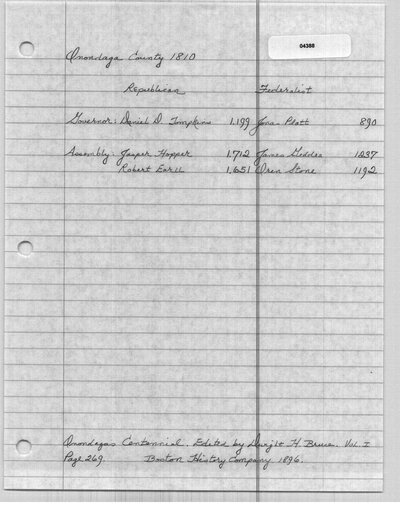 04388
Onondaga County 1810
Republican Federalist
Governor: Daniel D. Tompkins 1,199 Jona Platt 890
Assembly: Jasper Hopper 1,712 James Geddes 1237
Robert Earll 1,651 Oren Stone 1192
Onondagas Centennial. Edited by Dwight H. Bruce. Vol. I
Page 269. Boston History Company 1896.